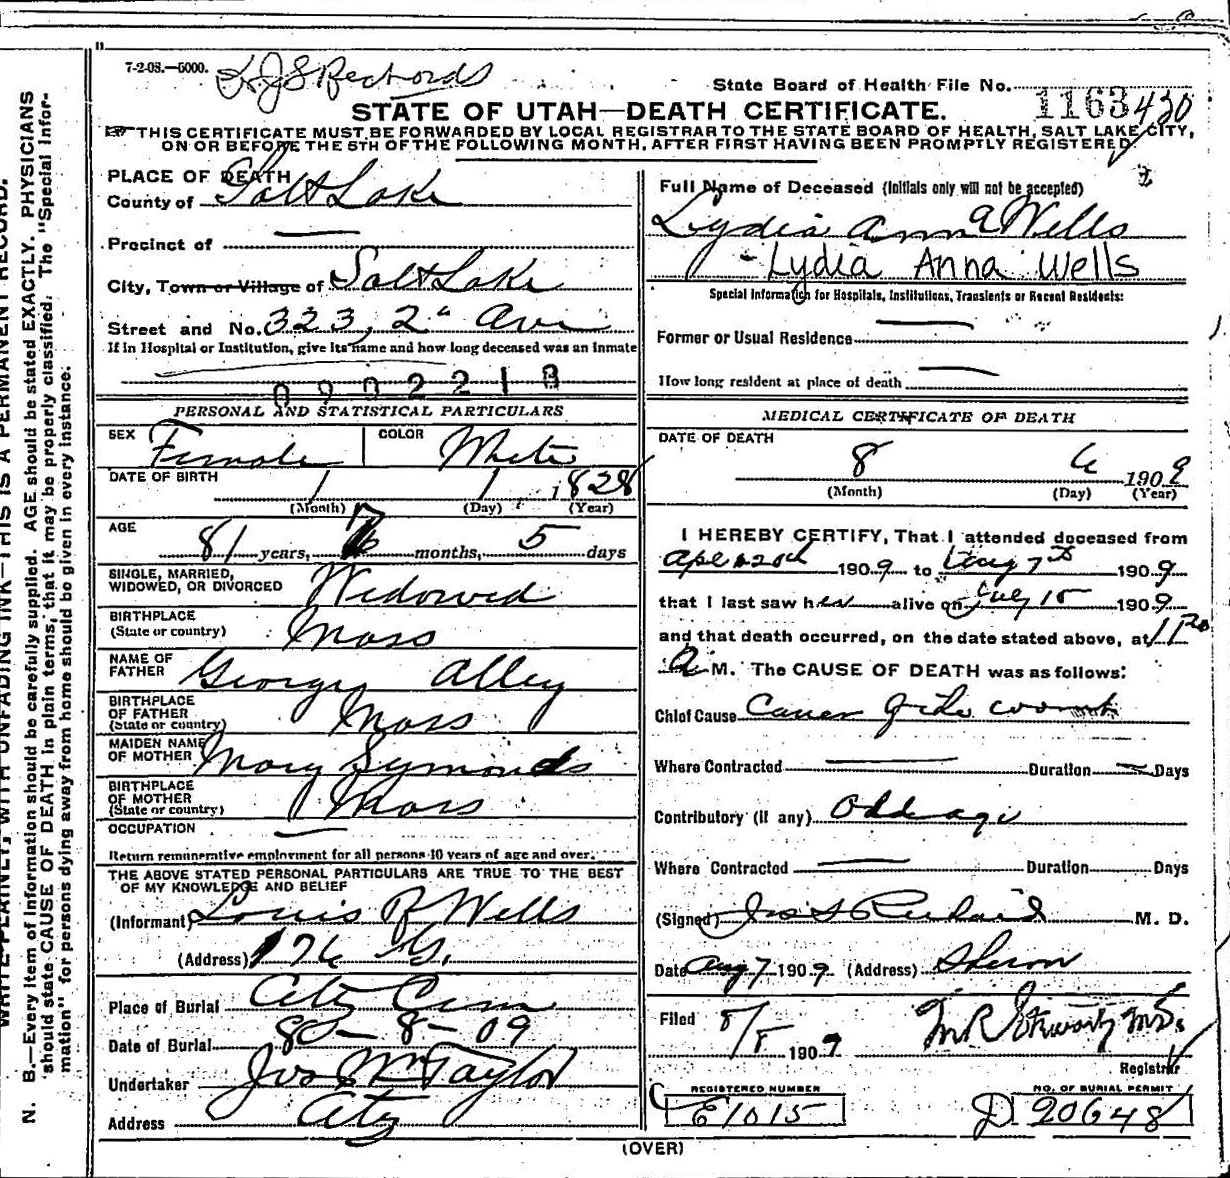 7-2-08.—5000.
State Board of Health File No. 1163 430
STATE OF UTAH—DEATH CERTIFICATE.
THIS CERTIFICATE MUST BE FORWARDED BY LOCAL REGISTRAR TO THE STATE BOARD OF HEALTH, SALT LAKE CITY,
ON OR BEFORE THE 5TH OF THE FOLLOWING MONTH, AFTER FIRST HAVING BEEN PROMPTLY REGISTERED
PLACE OF DEATH
County of Salt Lake
Precinct of
City, Town or Village of Salt Lake
Street and No. 323, 2" Ave
If in Hospital or Institution, give its name and how long deceased was an inmate
PERSONAL AND STATISTICAL PARTICULARS
SEX Female COLOR White
DATE OF BIRTH 1 1 1828
(Month) (Day) (Year)
AGE
81 years, 7 months, 5 days
SINGLE, MARRIED,
WIDOWED, OR DIVORCED Widowed
BIRTHPLACE
(State or country) Mass
NAME OF
FATHER George Alley
BIRTHPLACE
OF FATHER
(State or country) Mass
MAIDEN NAME
OF MOTHER Mary Symonds
BIRTHPLACE
OF MOTHER
(State or country) Mass
OCCUPATION
Return remunerative employment for all persons 10 years of age and over.
THE ABOVE STATED PERSONAL PARTICULARS ARE TRUE TO THE BEST
OF MY KNOWLEDGE AND BELIEF
(Informant) Louis R Wells
(Address) 176 G.
Place of Burial City Cem
Date of Burial 8-09
Undertaker Jos Wm Taylor
Address City
Full Name of Deceased (Initials only will not be accepted)
Lydia Ann a Wells
- Lydia Anna Wells
Special Information for Hospitals, Institutions, Transients or Recent Residents:
Former or Usual Residence
How long resident at place of death
MEDICAL CERTIFICATE OF DEATH
DATE OF DEATH
8 6 1909
(Month) (Day) (Year)
I HEREBY CERTIFY, That I attended deceased from
20th 1909 to Aug 7th 1909
that I last saw her alive on July 15 1909
and that death occurred, on the date stated above, at 11 30
A M. The CAUSE OF DEATH was as follows:
Chief Cause Cancer of the womb
Where Contracted Duration Days
Contributory (if any) Old age
Where Contracted Duration Days
(Signed) Jos S Richards M. D.
Date Aug 7 1909 (Address) Sharon
Filed 8/8 1909 M.D.
Registrar
REGISTERED NUMBER
E1015
NO. OF BURIAL PERMIT
D 20648
(OVER)
N. B.—Every item of information should be carefully supplied. AGE should be stated EXACTLY. PHYSICIANS
should state CAUSE OF DEATH in plain terms, that it may be properly classified. The "Special Infor-
mation" for persons dying away from home should be given in every instance.
WRITE PLAINLY, WITH UNFADING INK—THIS IS A PERMANENT RECORD.